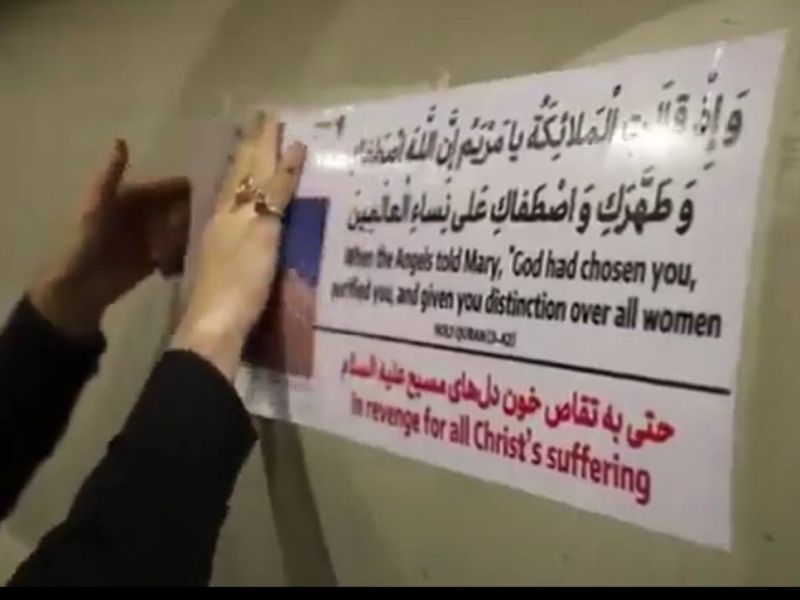 وَ إِذْ قَالَتِ الْمَلائِكَةُ يا مَرْيَمُ إِنَّ اللَّهَ اصْطَفاكِ
وَ طَهَّرَكِ وَ اصْطَفاكِ عَلى نِساءِ الْعالَمِينَ
When the Angels told Mary, "God had chosen you,
purified you, and given you distinction over all women
HOLY QURAN (3-42)
حتی به تقاص خون دل‌های مسیح علیه السلام
In revenge for all Christ's suffering